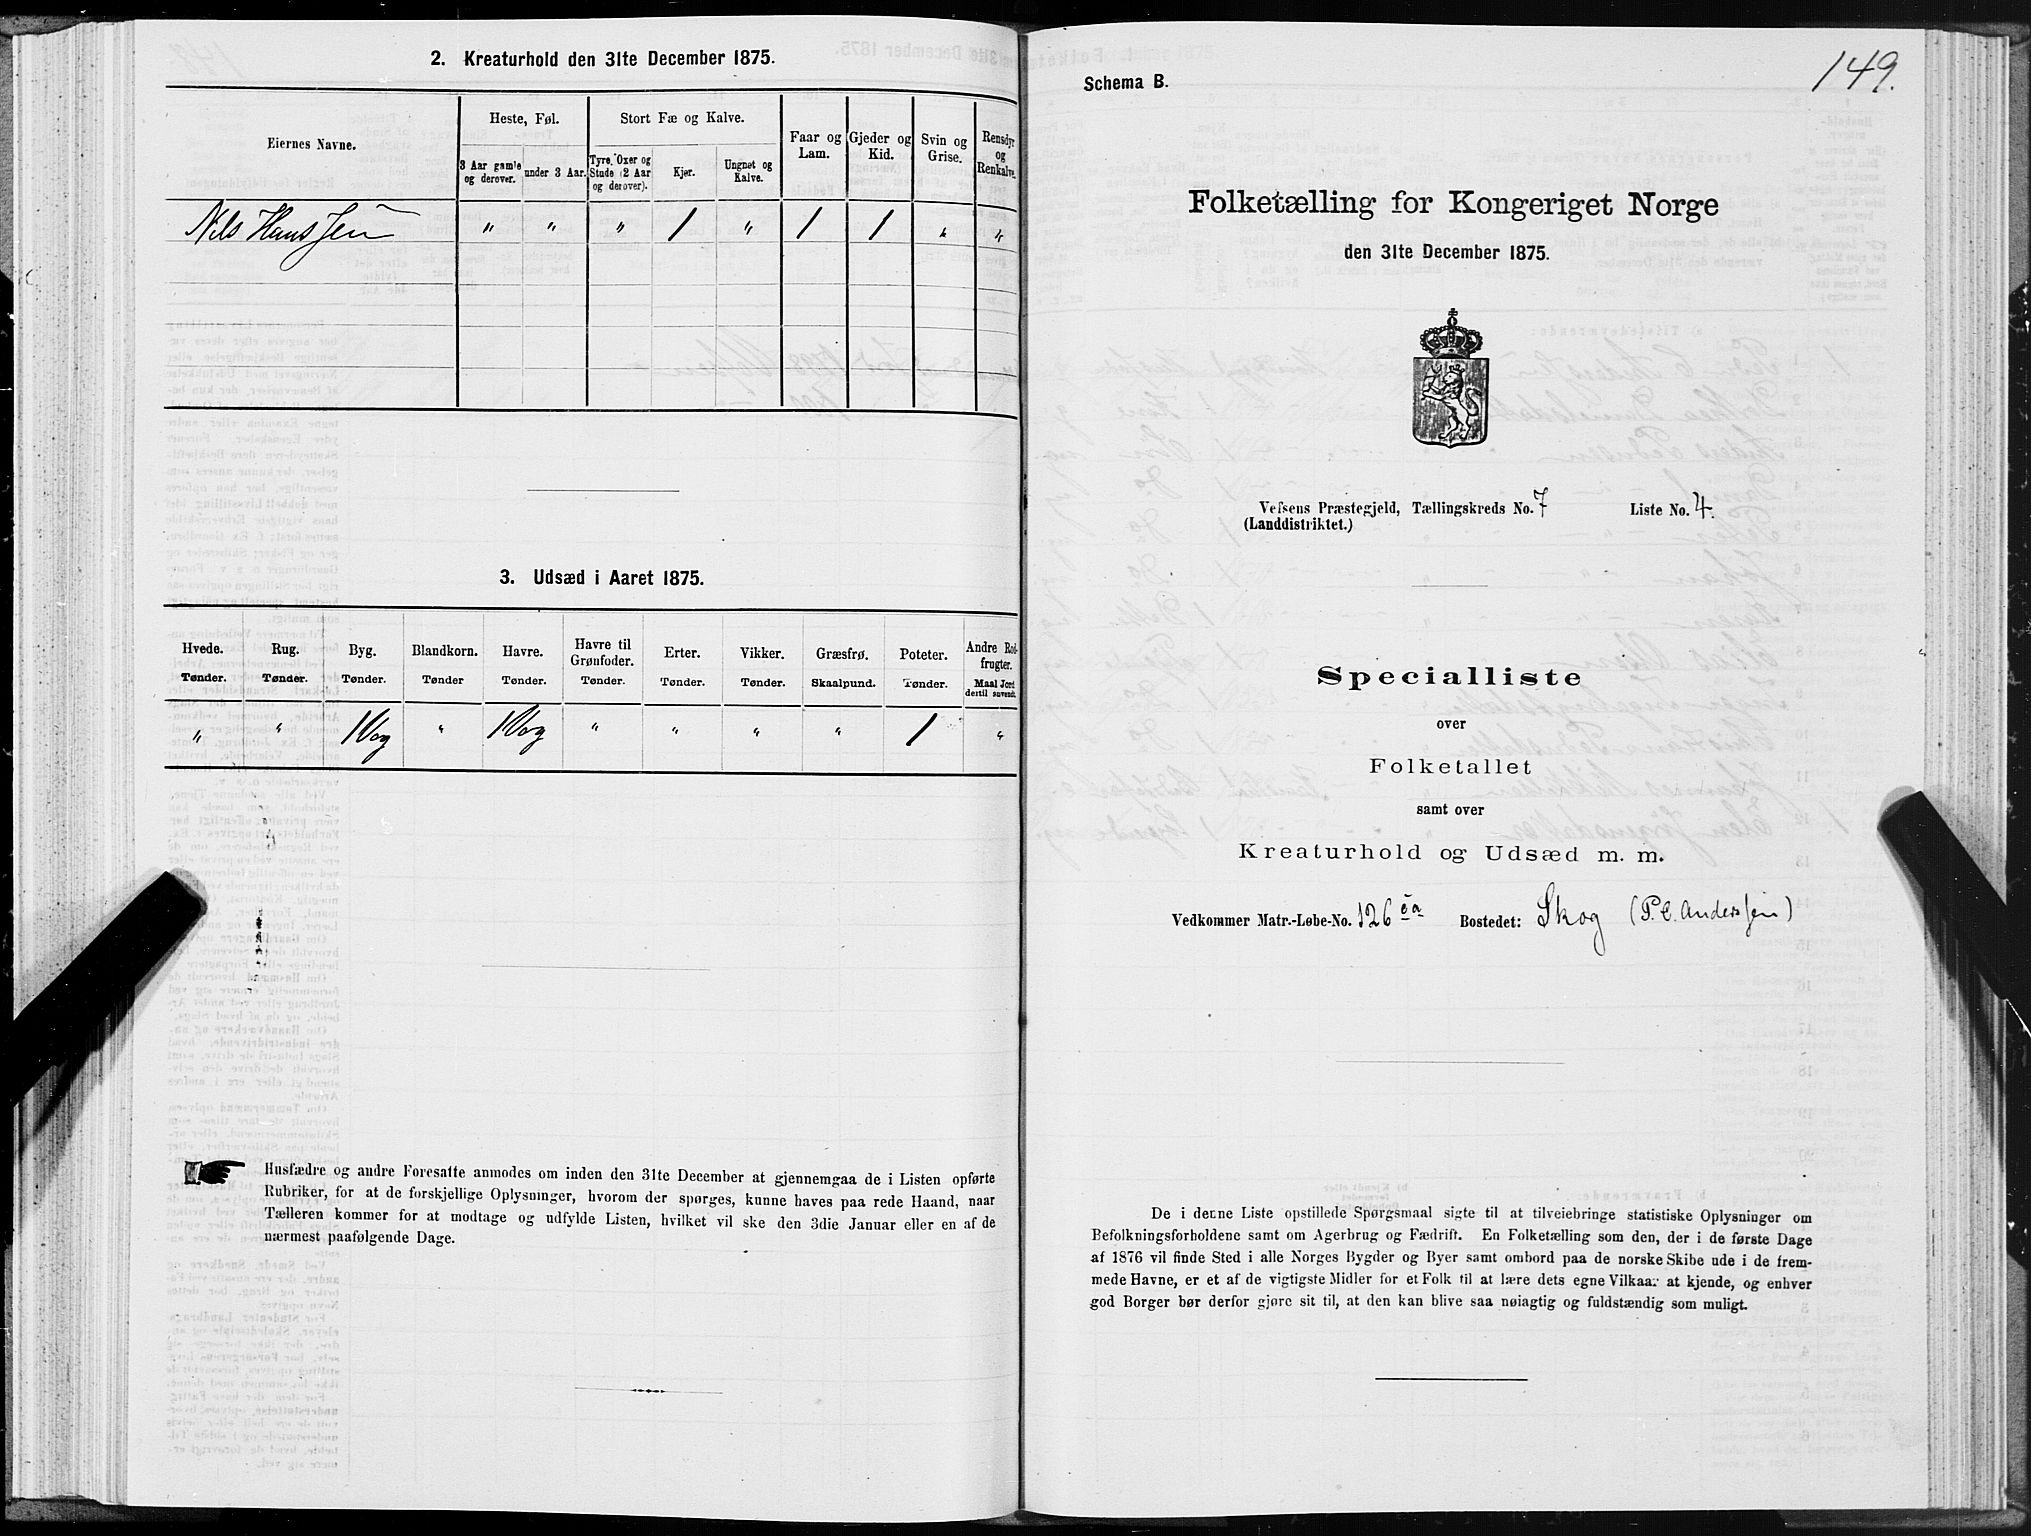 2. Kreaturhold den 31te December 1875.
Eiernes Navne.
Heste, Føl.
Stort Fæ og Kalve.
Faar og Lam.
Gjeder og Kid.
Svin og Grise.
Rensdyr og Renkalve.
3 Aar gamle og derover.
under 3 Aar.
Tyre, Oxer og Stude (2 Aar og derover).
Kjør.
Ungnøt og Kalve.
Nils Hanssen " " " 1 " 1 1 " "
3. Udsæd i Aaret 1875.
Hvede. Rug. Byg. Blandkorn. Havre. Havre til Grønfoder. Erter. Vikker. Græsfrø. Poteter. Andre Rodfrugter.
Tønder. Tønder. Tønder. Tønder Tønder. Tønder. Tønder. Tønder. Skaalpund. Tønder. Maal Jord dertil anvendt.
" " 1 Vog " 1 Vog " " " " 1 "
Husfædre og andre Foresatte anmodes om inden den 31te December at gjennemgaa de i Listen opførte
Rubriker, for at de forskjellige Oplysninger, hvorom der spørges, kunne haves paa rede Haand, naar
Tælleren kommer for at modtage og udfylde Listen, hvilket vil ske den 3die Januar eller en af de
nærmest paafølgende Dage.
149.
Schema B.
Folketælling for Kongeriget Norge
den 31te December 1875.
Vefsens Præstegjeld, Tællingskreds No. 7 Liste No. 4.
(Landdistriktet.)
Specialliste
over
Folketallet
samt over
Kreaturhold og Udsæd m. m.
Vedkommer Matr.-Løbe-No. 126 ea Bostedet: Skog (P. C. Anderssen)
De i denne Liste opstillede Spørgsmaal sigte til at tilveiebringe statistiske Oplysninger om
Befolkningsforholdene samt om Agerbrug og Fædrift. En Folketælling som den, der i de første Dage
af 1876 vil finde Sted i alle Norges Bygder og Byer samt ombord paa de norske Skibe ude i de frem-
mede Havne, er et af de vigtigste Midler for et Folk til at lære dets egne Vilkaar at kjende, og enhver
god Borger bør derfor gjøre sit til, at den kan blive saa nøiagtig og fuldstændig som muligt.